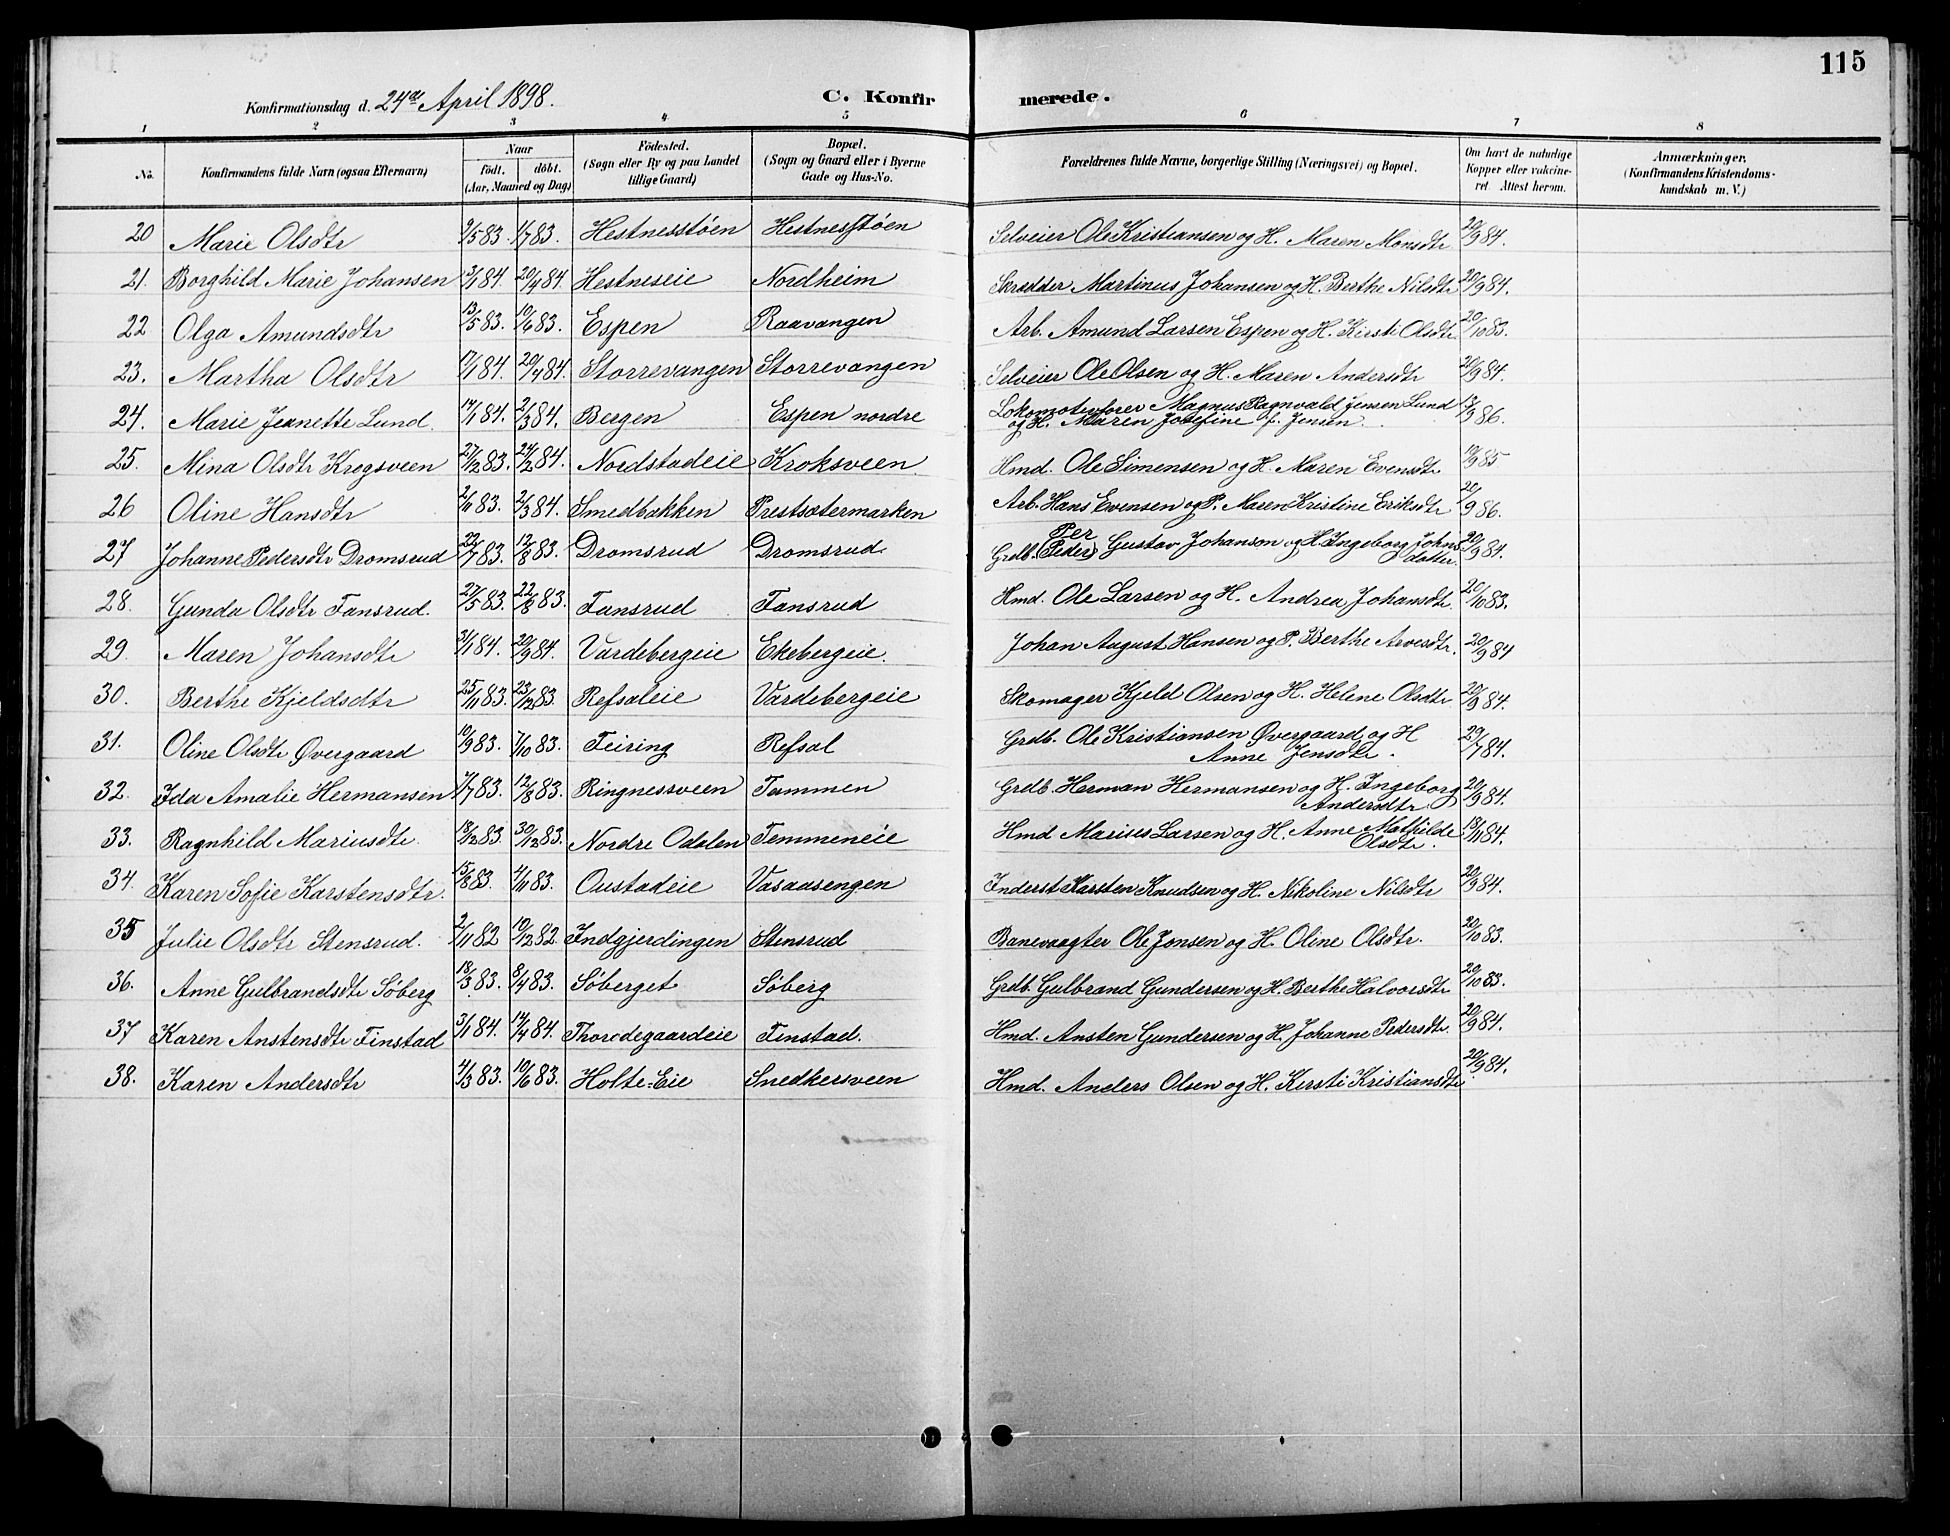 115
Konfirmationsdag d. 24de April 1898.
C. Konfirmerede.
1 2 3 4 5 6 7 8
No. Konfirmandens fulde Navn (ogsaa Efternavn) Naar födt. döbt. (Aar, Maaned og Dag) Födested. (Sogn eller By og paa Landet tillige Gaard) Bopæl. (Sogn og Gaard eller i Byerne Gade og Hus-No. Forældrenes fulde Navne, borgerlige Stilling (Næringsvei) og Bopæl. Om havt de naturlige Kopper eller vakcineret. Attest herom. Anmærkninger. (Konfirmandens Kristendomskundskab m. V.)
20 Marie Olsdtr 9/5 83. 1/7 83. Hestnesstöen Hestnesstöen Selveier Ole Kristiansen og H. Maren Monsdtr 20/9 84.
21. Borghild Marie Johansen 3/1 84. 20/4 84. Hestneseie Nordheim Skrædder Martinus Johansen og H. Berthe Nilsdtr 20/9 84.
22 Olga Amundsdtr 13/5 83. 10/6 83. Espen Raavangen Arb. Amund Larsen Espen og H. Kirsti Olsdtr 20/10 83.
23. Martha Olsdtr 17/1 84. 20/4 84. Storrevangen Storrevangen Selveier Ole Olsen og H. Maren Andersdtr 20/9 84.
24. Marie Jeanette Lund. 17/1 84. 2/3 84. Bergen Espen nordre Lokomotivförer Magnus Ragnvald Jensen Lund og H. Maren Josefine f. Jensen. 13/9 86.
25. Mina Olsdtr Krogsveen 27/12 83. 24/2 84. Nordstadeie Kroksveen Hmd. Ole Simensen og H. Maren Evensdtr 19/9 85
26 Oline Hansdtr 2/11 83. 2/3 84. Smedbakken Prestsætermarken Arb. Hans Evensen og P. Maren Kristine Eriksdtr 21/9 86.
27 Johanne Pedersdtr Dromsrud 22/7 83. 12/8 83. Dromsrud Dromsrud Grdb. Per (Peder) Gustav Johanson og H. Ingeborg Johnsdatter. 20/9 84.
28. Gunda Olsdtr Fansrud. 27/5 83. 22/8 83. Fansrud Fansrud Hmd. Ole Larsen og H. Andrea Johansdtr. 20/10 83.
29. Maren Johansdtr 31/1 84. 20/9 84. Vardebergeie Ekebergeie. Johan August Hansen og P. Berthe Arvesdtr. 20/9 84
30. Berthe Kjeldsdtr 25/11 83. 23/12 83. Refsaleie Vardebergeie Skomager Kjeld Olsen og H. Helene Olsdtr 20/9 84.
31. Oline Olsdtr Øvergaard 10/9 83. 7/10 83. Feiring Refsal Grdb. Ole Kristiansen Øvergaard og H Anne Jensdtr. 29/7 84.
32. Ida Amalie Hermansen 7/7 83. 12/8 83. Ringnessveen Tammen Grdb. Herman Hermansen og H. Ingeborg Andersdtr 20/9 84.
33. Ragnhild Mariusdtr 18/12 83. 30/12 83. Nordre Odalen Temmeneie Hmd Marius Larsen og H. Anne Mathilde Olsdtr. 18/11 84.
34. Karen Sofie Karstensdtr. 15/8 83. 4/11 83. Oustadeie Vasaasengen Inderst Karsten Knudsen og H. Nikoline Nilsdtr 20/9 84.
35 Julie Olsdtr Stensrud. 2/11 82 10/12 82. Indgjerdingen Stensrud Banevagter Ole Jonsen og H. Oline Olsdtr. 20/10 83.
36. Anne Gulbrandsdtr Söberg 18/3 83. 8/4 83. Söberget Söberg Grdb. Gulbrand Gundersen og H. Berthe Halvorsdtr 20/10 83.
37 Karen Anstensdtr Finstad 3/1 84. 14/4 84. Thorodegaardeie Finstad. Hmd. Ansten Gundersen og H. Johanne Pedersdtr. 20/9 84.
38. Karen Andersdtr 4/3 83. 10/6 83. Holte-Eie Snedkersveen Hmd. Anders Olsen og H. Kirsti Kristiansdtr 20/9 84.